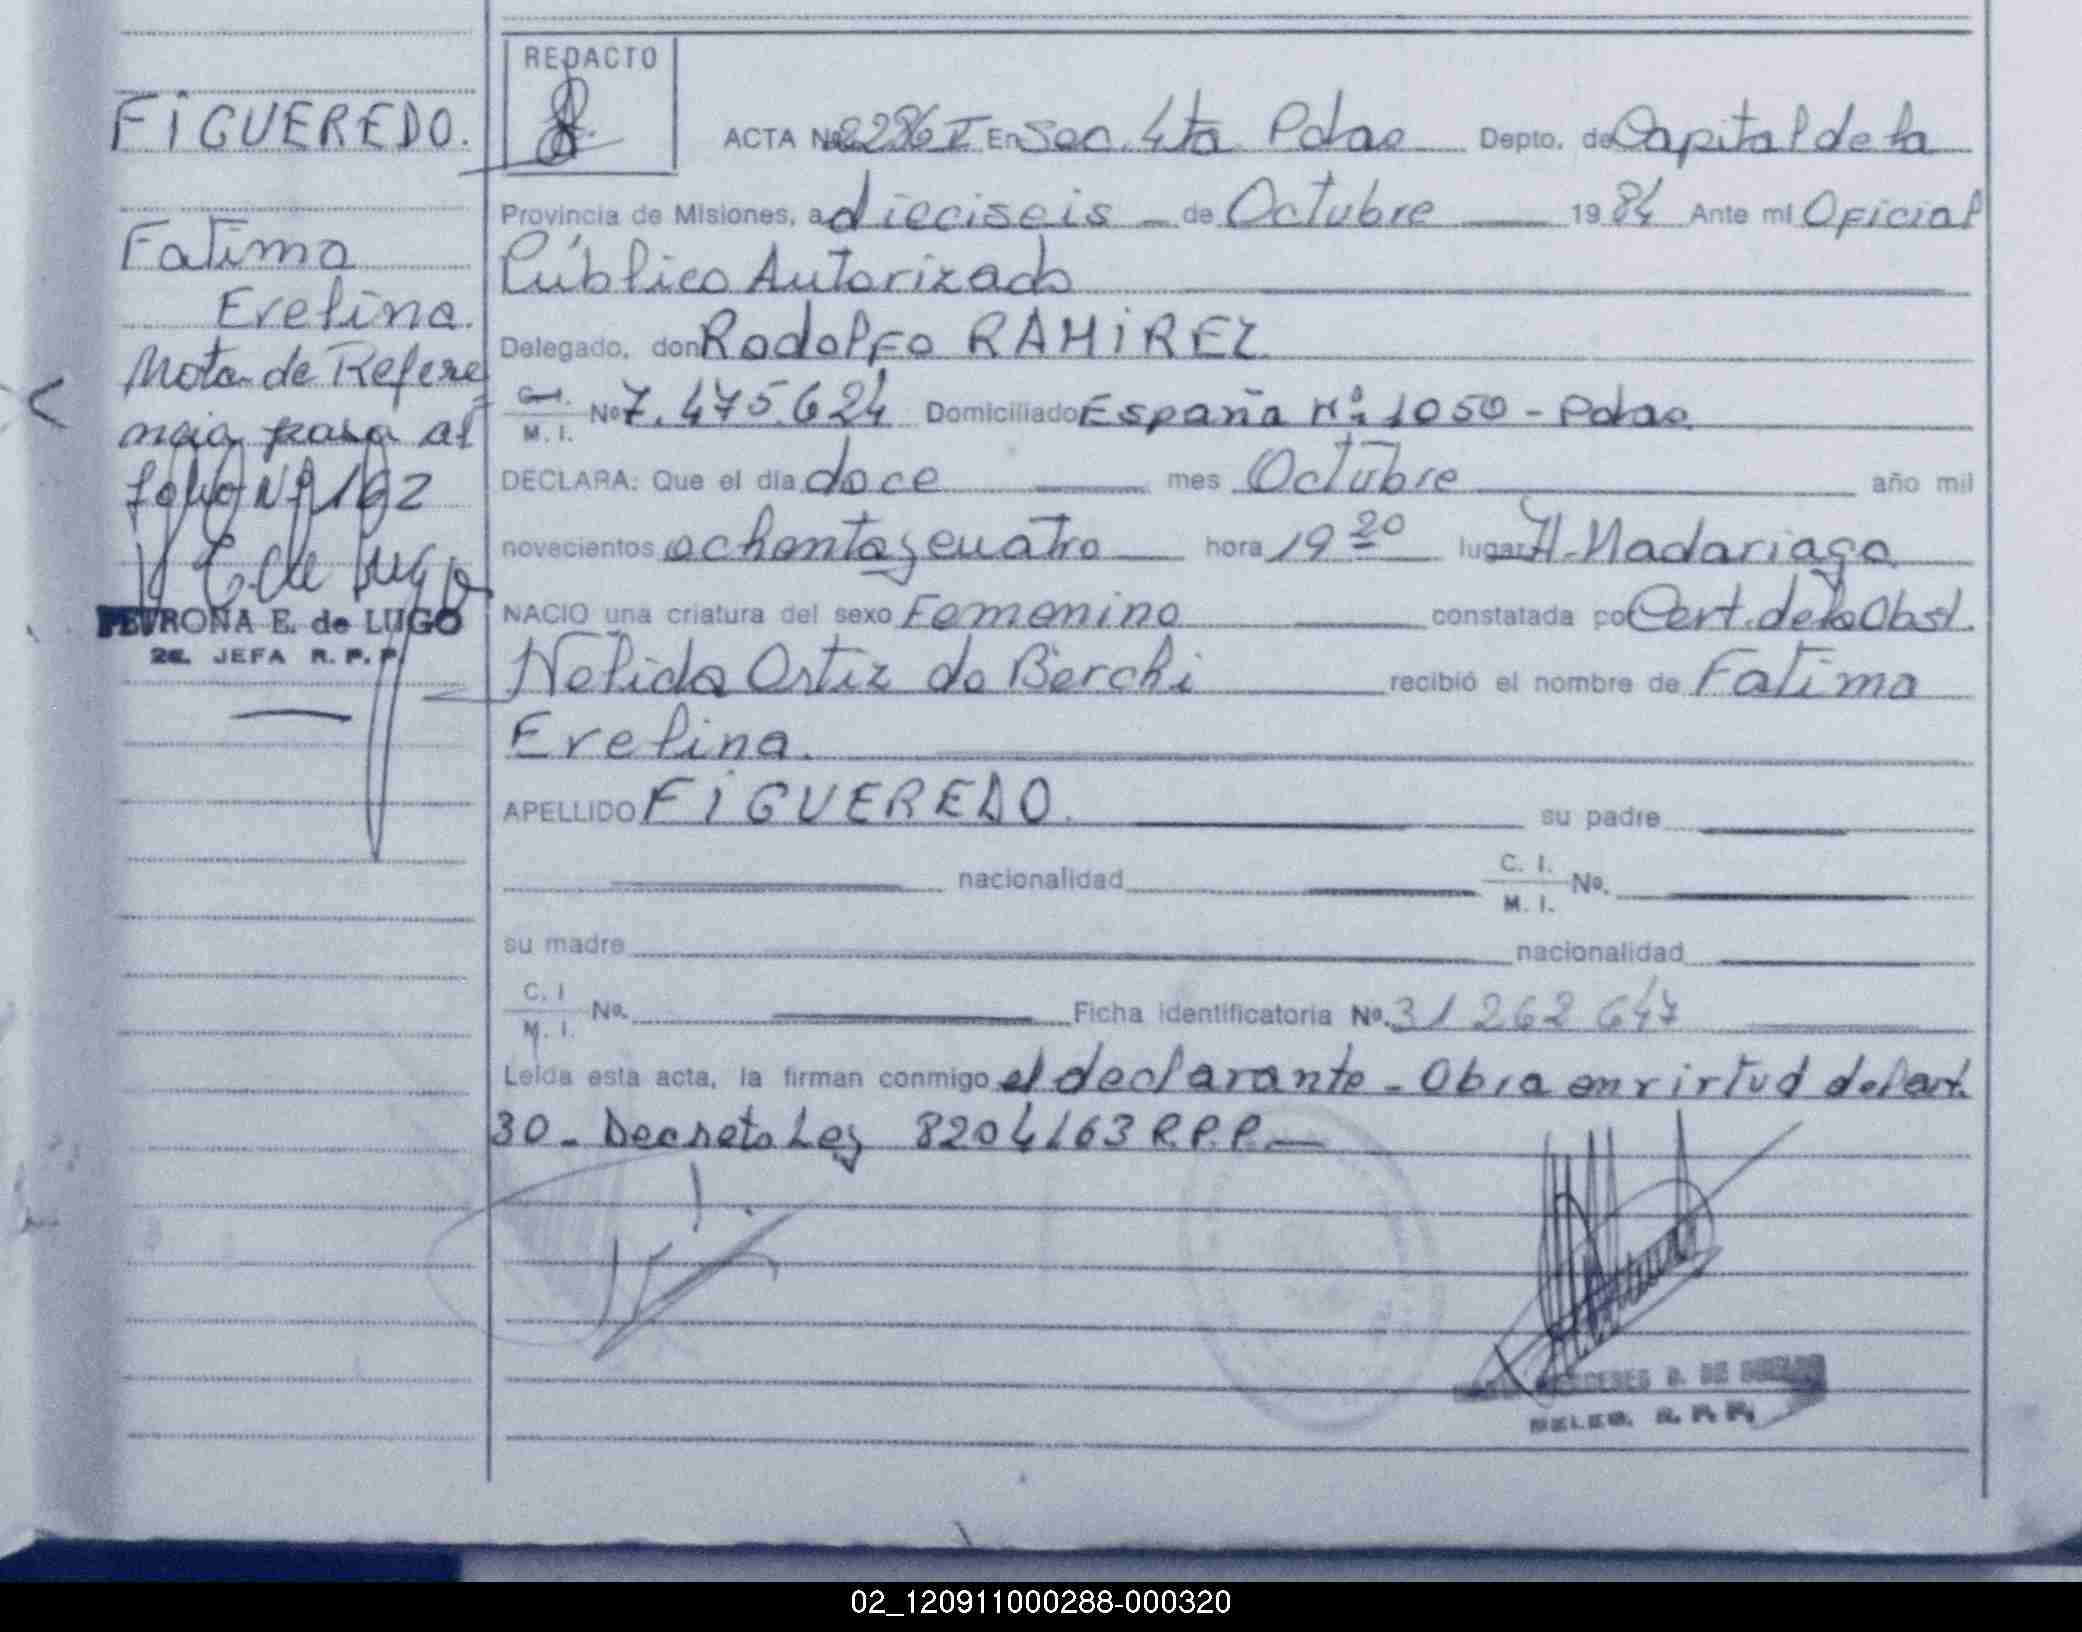 REDACTO
FIGUEREDO.
ACTA Nº 2286 I En Sec. 4ta Pdas Depto. de Capital de la
Provincia de Misiones, a dieciseis de Octubre 1984 Ante mí Oficial
Fatima
Público Autorizado
Evelina.
Delegado, don Rodolfo RAMIREZ
Nota de Refere
C. I. M. I. Nº 7.475.624 Domiciliado España Nº 1050 - Pdas.
ncia pasa al
DECLARA: Que el día doce mes Octubre año mil
folio Nº 162
novecientos ochenta y cuatro hora 19 20 lugar H. Madariaga
E de Lugo
PETRONA E. de LUGO
NACIO una criatura del sexo Femenino constatada po Cert. de la Obst.
2a. JEFA R. P. P.
Nelida Ortiz de Berchi recibió el nombre de Fatima
Evelina.
APELLIDO FIGUEREDO. su padre
nacionalidad C. I. M. I. Nº.
su madre nacionalidad
C. I M. I. Nº. Ficha identificatoria Nº. 31 262 647
Leída esta acta, la firman conmigo el declarante - Obra en virtud del art.
30 - Decreto Ley 8204/63 R.P.P.
DELEG. R. P. P.
02_120911000288-000320